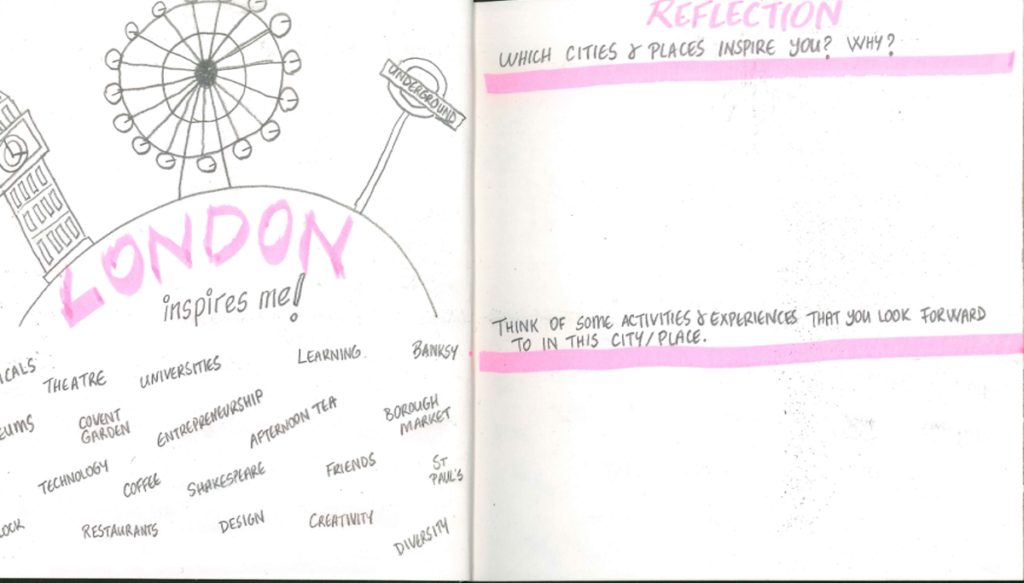 UNDERGROUND
LONDON
inspires me!
THEATRE
UNIVERSITIES
LEARNING
BANKSY
COVENT
GARDEN
ENTREPRENEURSHIP
AFTERNOON TEA
BOROUGH
MARKET
TECHNOLOGY
COFFEE
SHAKESPEARE
FRIENDS
ST
PAUL'S
RESTAURANTS
DESIGN
CREATIVITY
DIVERSITY
REFLECTION
WHICH CITIES & PLACES INSPIRE YOU? WHY?
THINK OF SOME ACTIVITIES & EXPERIENCES THAT YOU LOOK FORWARD
TO IN THIS CITY/PLACE.